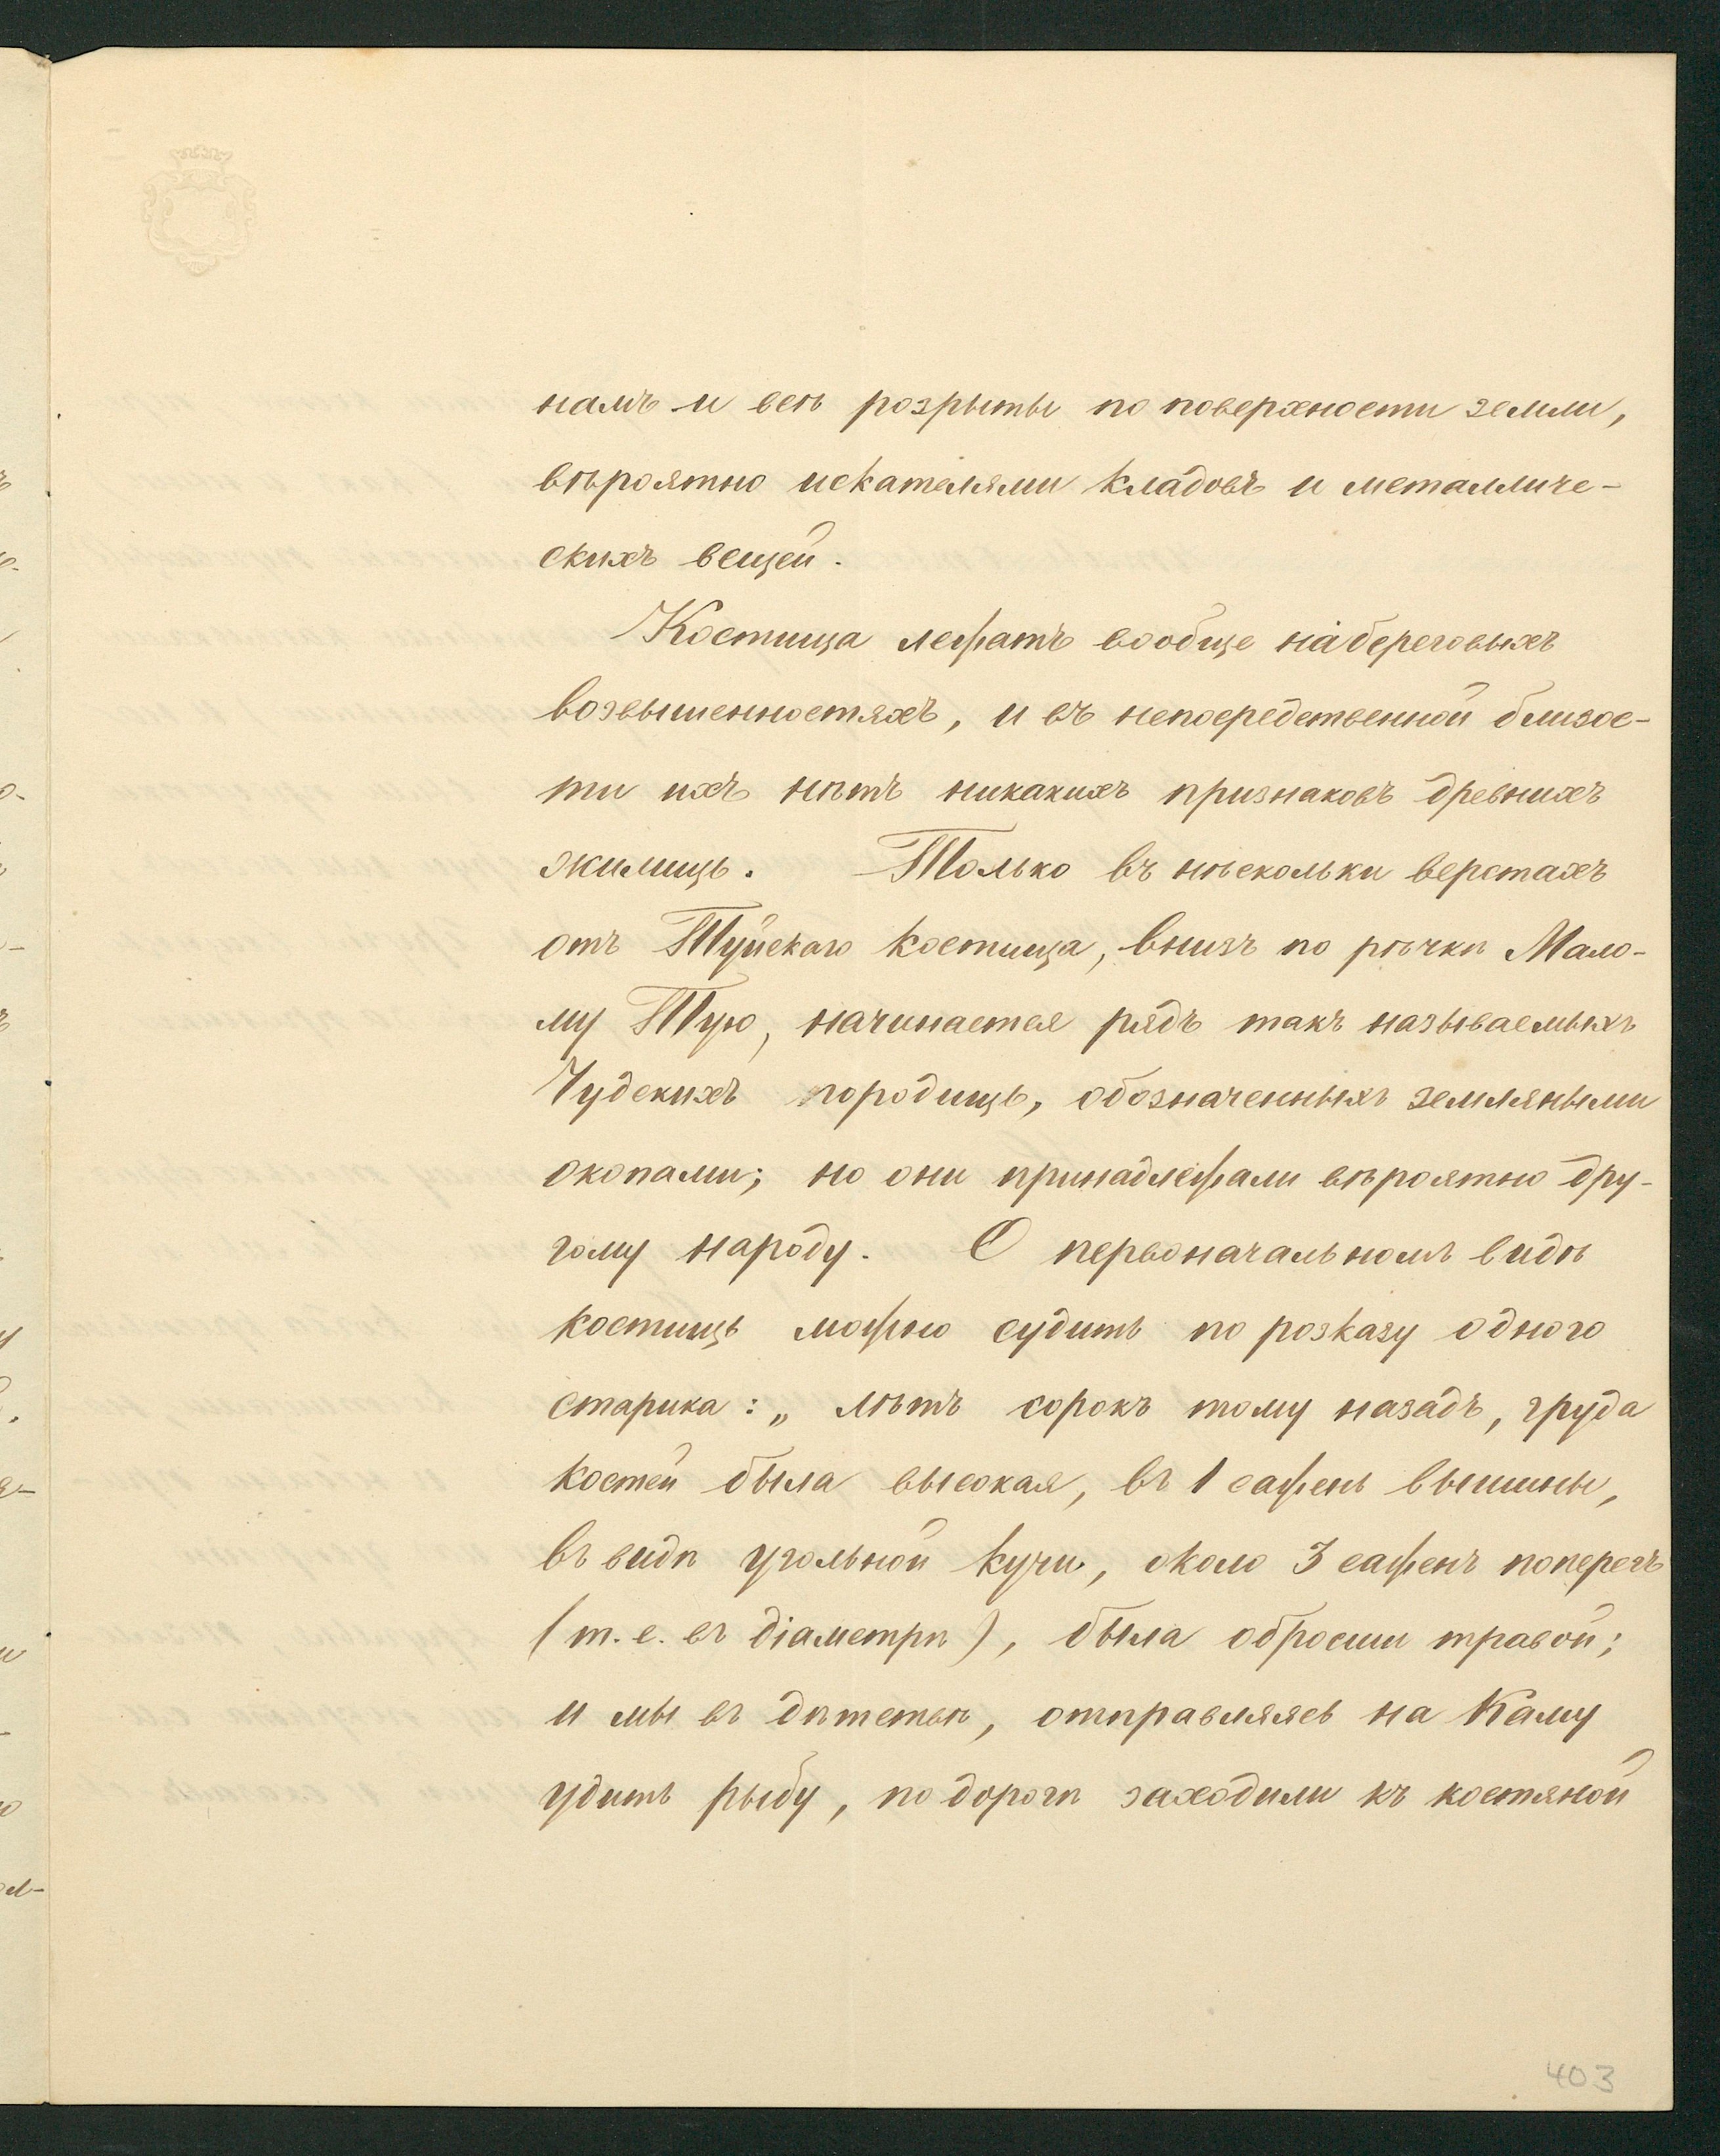 намъ и всѣ розрыты по поверхности земли,
вѣроятно искателями кладовъ и металличе-
скихъ вещей.
Костища лежатъ вообще на береговыхъ
возвышенностяхъ, и въ непосредственной близос-
ти ихъ нѣтъ никакихъ признаковъ древнихъ
жилищъ. Только въ нѣскольки верстахъ
отъ Туйскаго костища, внизъ по рѣчкѣ Мало-
му Тую, начинается рядъ такъ называемыхъ
Чудскихъ городищъ, обозначенныхъ земляными
окопами; но они принадлежали вѣроятно дру-
гому народу. О первоначальномъ видѣ
костищъ можно судить по розказу одного
старика: „ лѣтъ сорокъ тому назадъ, груда
костей была высокая, въ 1 сажень вышины,
въ видѣ угольной кучи, около 3 саженъ поперегъ
(т. е. въ діаметрѣ), была обросши травой;
и мы въ дѣтствѣ, отправляясь на Каму
удить рыбу, по дорогѣ заходили къ костяной
403